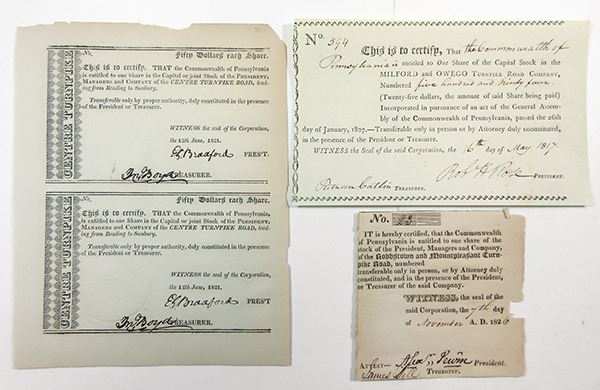 CENTRE TURNPIKE
No. Fifty Dollars each Share.
This is to certify, THAT the Commonwealth of Pennsylvania,
is entitled to one Share in the Capital or joint Stock of the PRESIDENT,
MANAGERS and COMPANY of the CENTRE TURNPIKE ROAD, lead-
ing from Reading to Sunbury.
Transferable only by proper authority, duly constituted in the presence
of the President or Treasurer.
WITNESS the seal of the Corporation,
the 12th June, 1821.
PRES'T.
Jno Boyd TREASURER.
CENTRE TURNPIKE
No. Fifty Dollars each Share.
This is to certify, THAT the Commonwealth of Pennsylvania,
is entitled to one Share in the Capital or joint Stock of the PRESIDENT,
MANAGERS and COMPANY of the CENTRE TURNPIKE ROAD, lead-
ing from Reading to Sunbury.
Transferable only by proper authority, duly constituted in the presence
of the President or Treasurer.
WITNESS the seal of the Corporation,
the 12th June, 1821.
PRES'T
Jno Boyd TREASURER.
No. 594
This is to certify, That the Commonwealth of
Pennsylvania is entitled to One Share of the Capital Stock in the
MILFORD and OWEGO TURNPIKE ROAD COMPANY,
Numbered five hundred and Ninty four
(Twenty-five dollars, the amount of said Share being paid)
Incorporated in pursuance of an act of the General Assem-
bly of the Commonwealth of Pennsylvania, passed the 26th
day of January, 1807.—Transferable only in person or by Attorney duly constituted,
in the presence of the President or Treasurer.
WITNESS the Seal of the said Corporation, the 16th day of May 1817.
PRESIDENT.
Putnam Catlin TREASURER.
No. 23
IT is hereby certified, that the Commonwealth
of Pennsylvania is entitled to one share of the
stock of the President, Managers, and Company,
of the Robbstown and Mountpleasant Turn-
pike Road, numbered
transferable only in person, or by Attorney duly
constituted, and in the presence of the President,
or Treasurer of the said Company.
WITNESS, the seal of the
said Corporation, the 7th day
of November A. D. 1826
ATTEST— President.
James Treasurer.